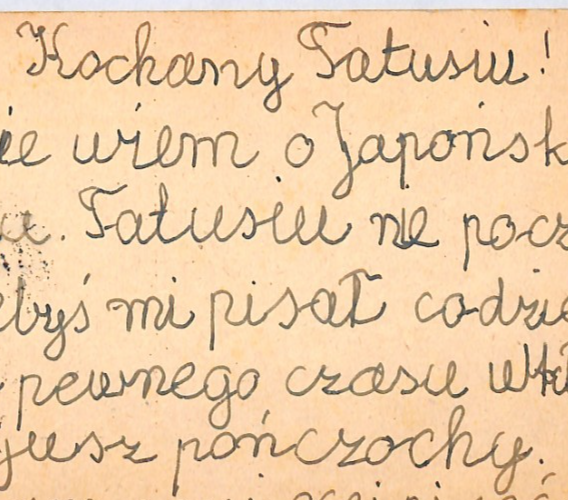 Kochany Tatusiu!
ie użem o Japońsk
u. Tatusiu nie pocz
ebyś mi pisał codzie
pewnego czasu wtł
jusz pończochy.